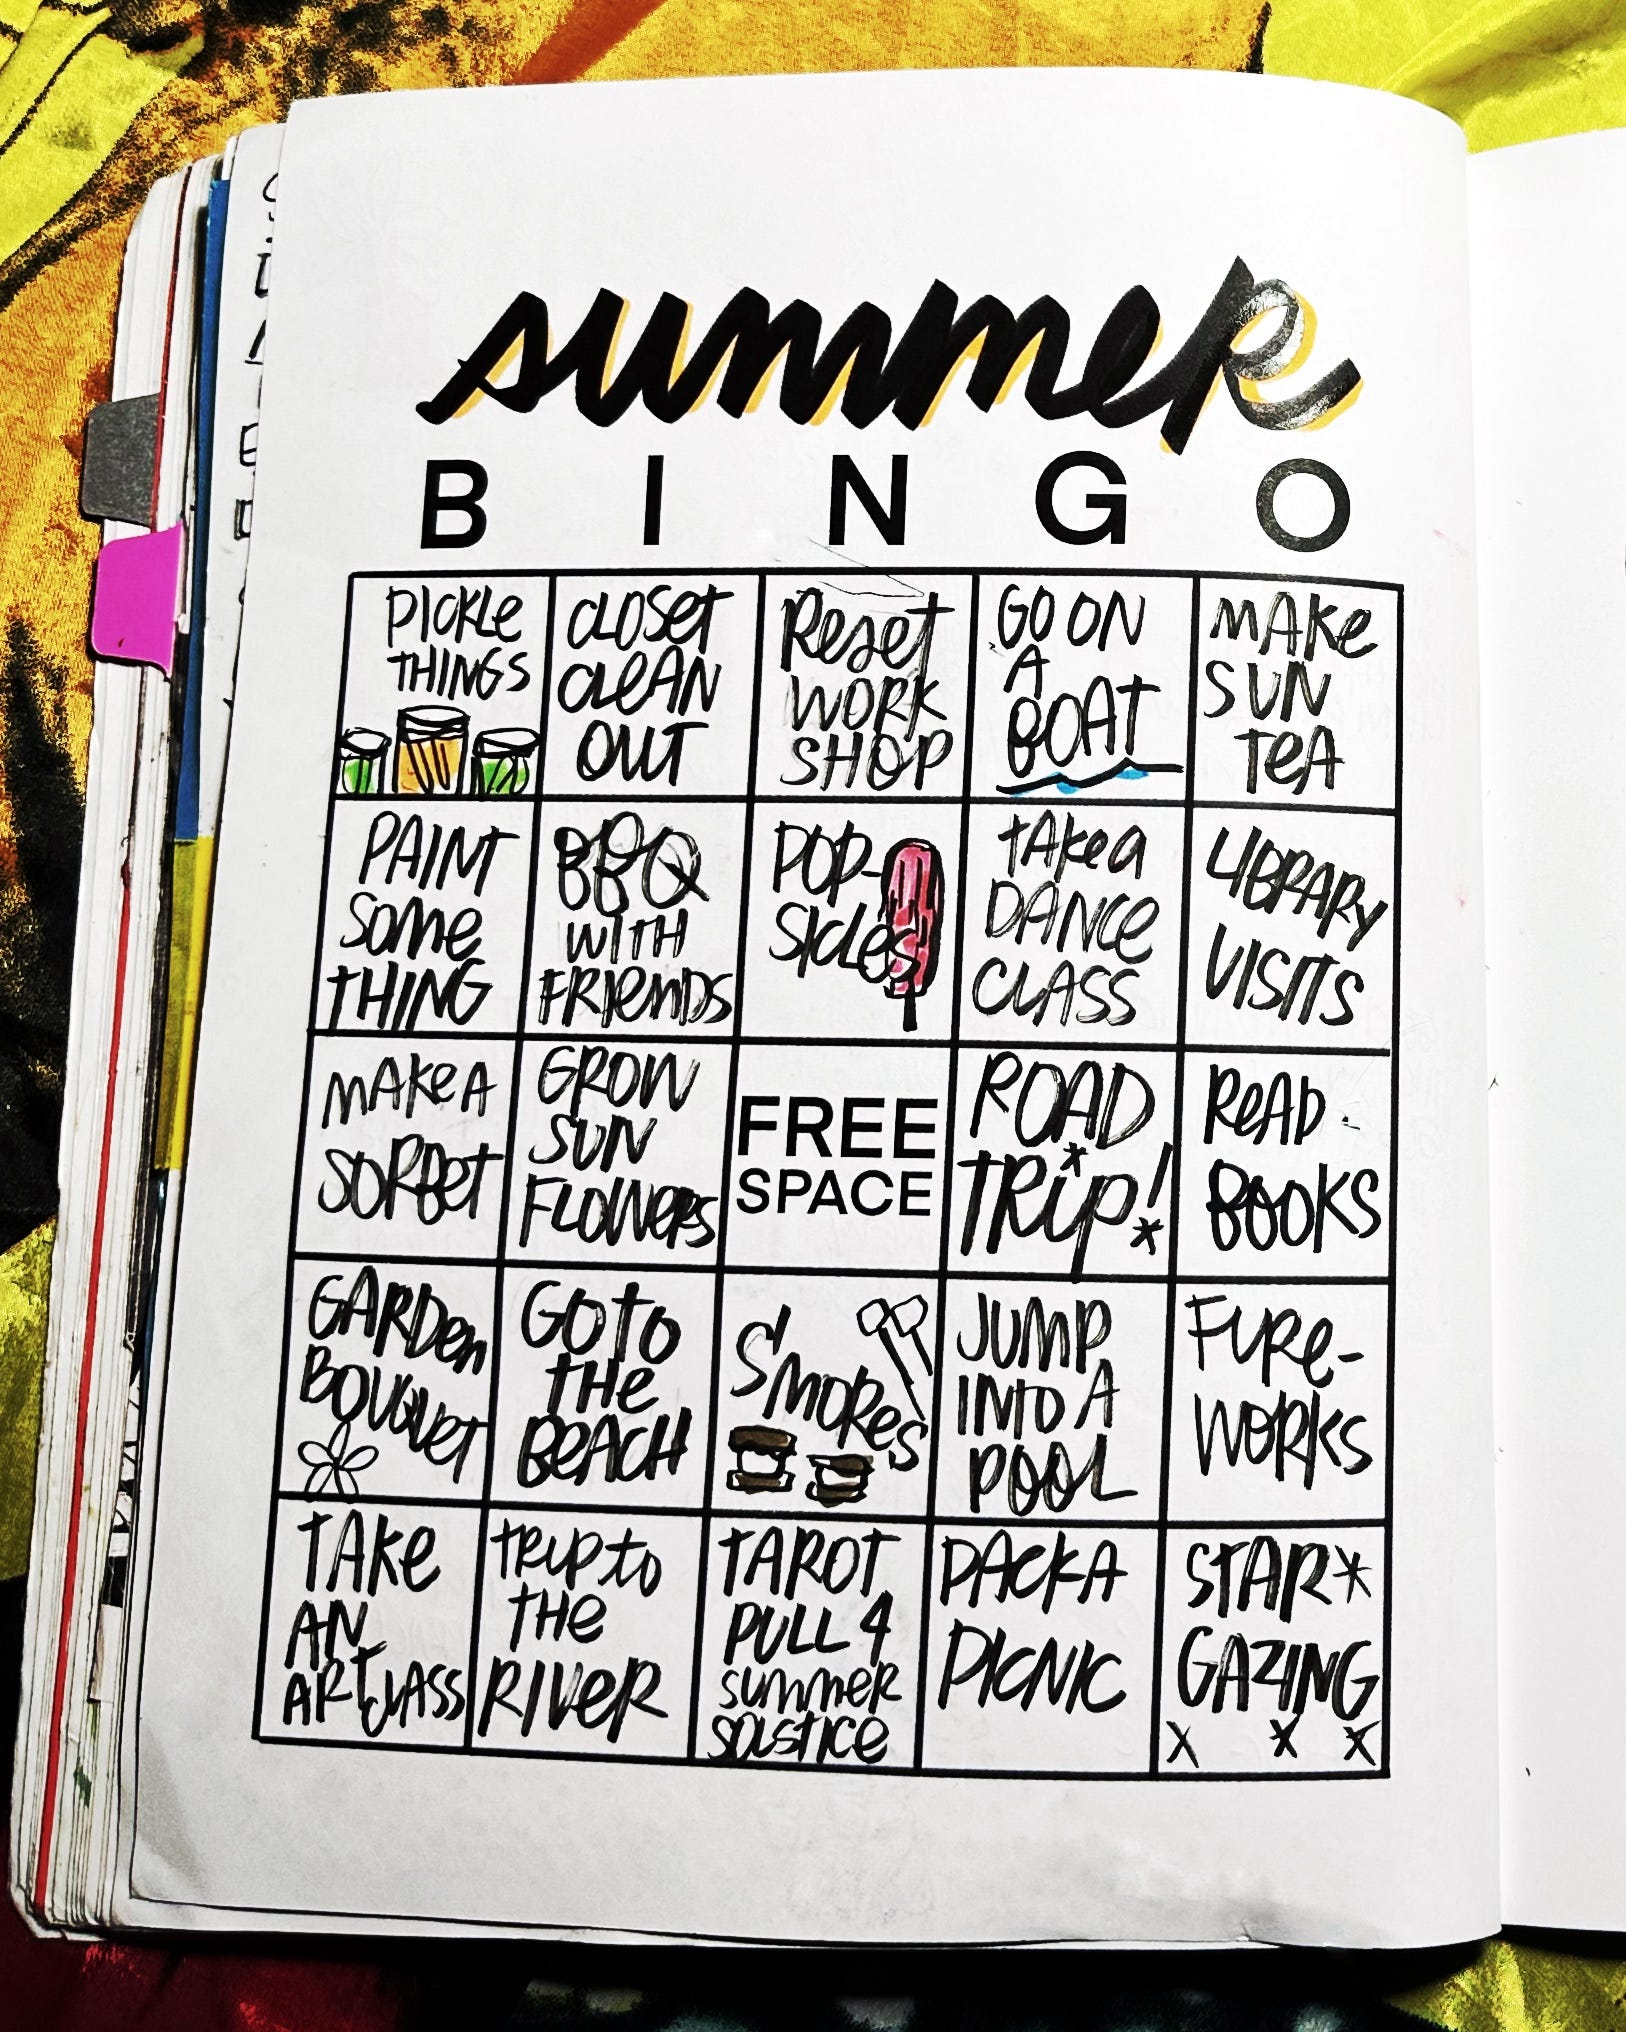 summer
B I N G O
PICKLE
THINGS
CLOSET
CLEAN
OUT
Reset
WORK
SHOP
GO ON
A
BOAT
MAKe
SUN
TeA
PAINT
Some
THING
BBQ
WITH
FRIENDS
POP-
SICLES
TAKe A
DANCe
CLASS
LIBRARY
VISITS
MAKe A
SORBET
GROW
SUN
FLOWeRS
FREE
SPACE
ROAD
TRIP!
ReAD
BOOKS
GARDen
BOUQUET
GO TO
THe
BeACH
S'MOReS
JUMP
INTO A
POOL
FIRe-
WORKS
TAKe
AN
ART CLASS
TRIP to
THe
RIVeR
TAROT
PULL 4
SUMMeR
SOLSTICe
PACK A
PICNIC
STAR*
GAZING